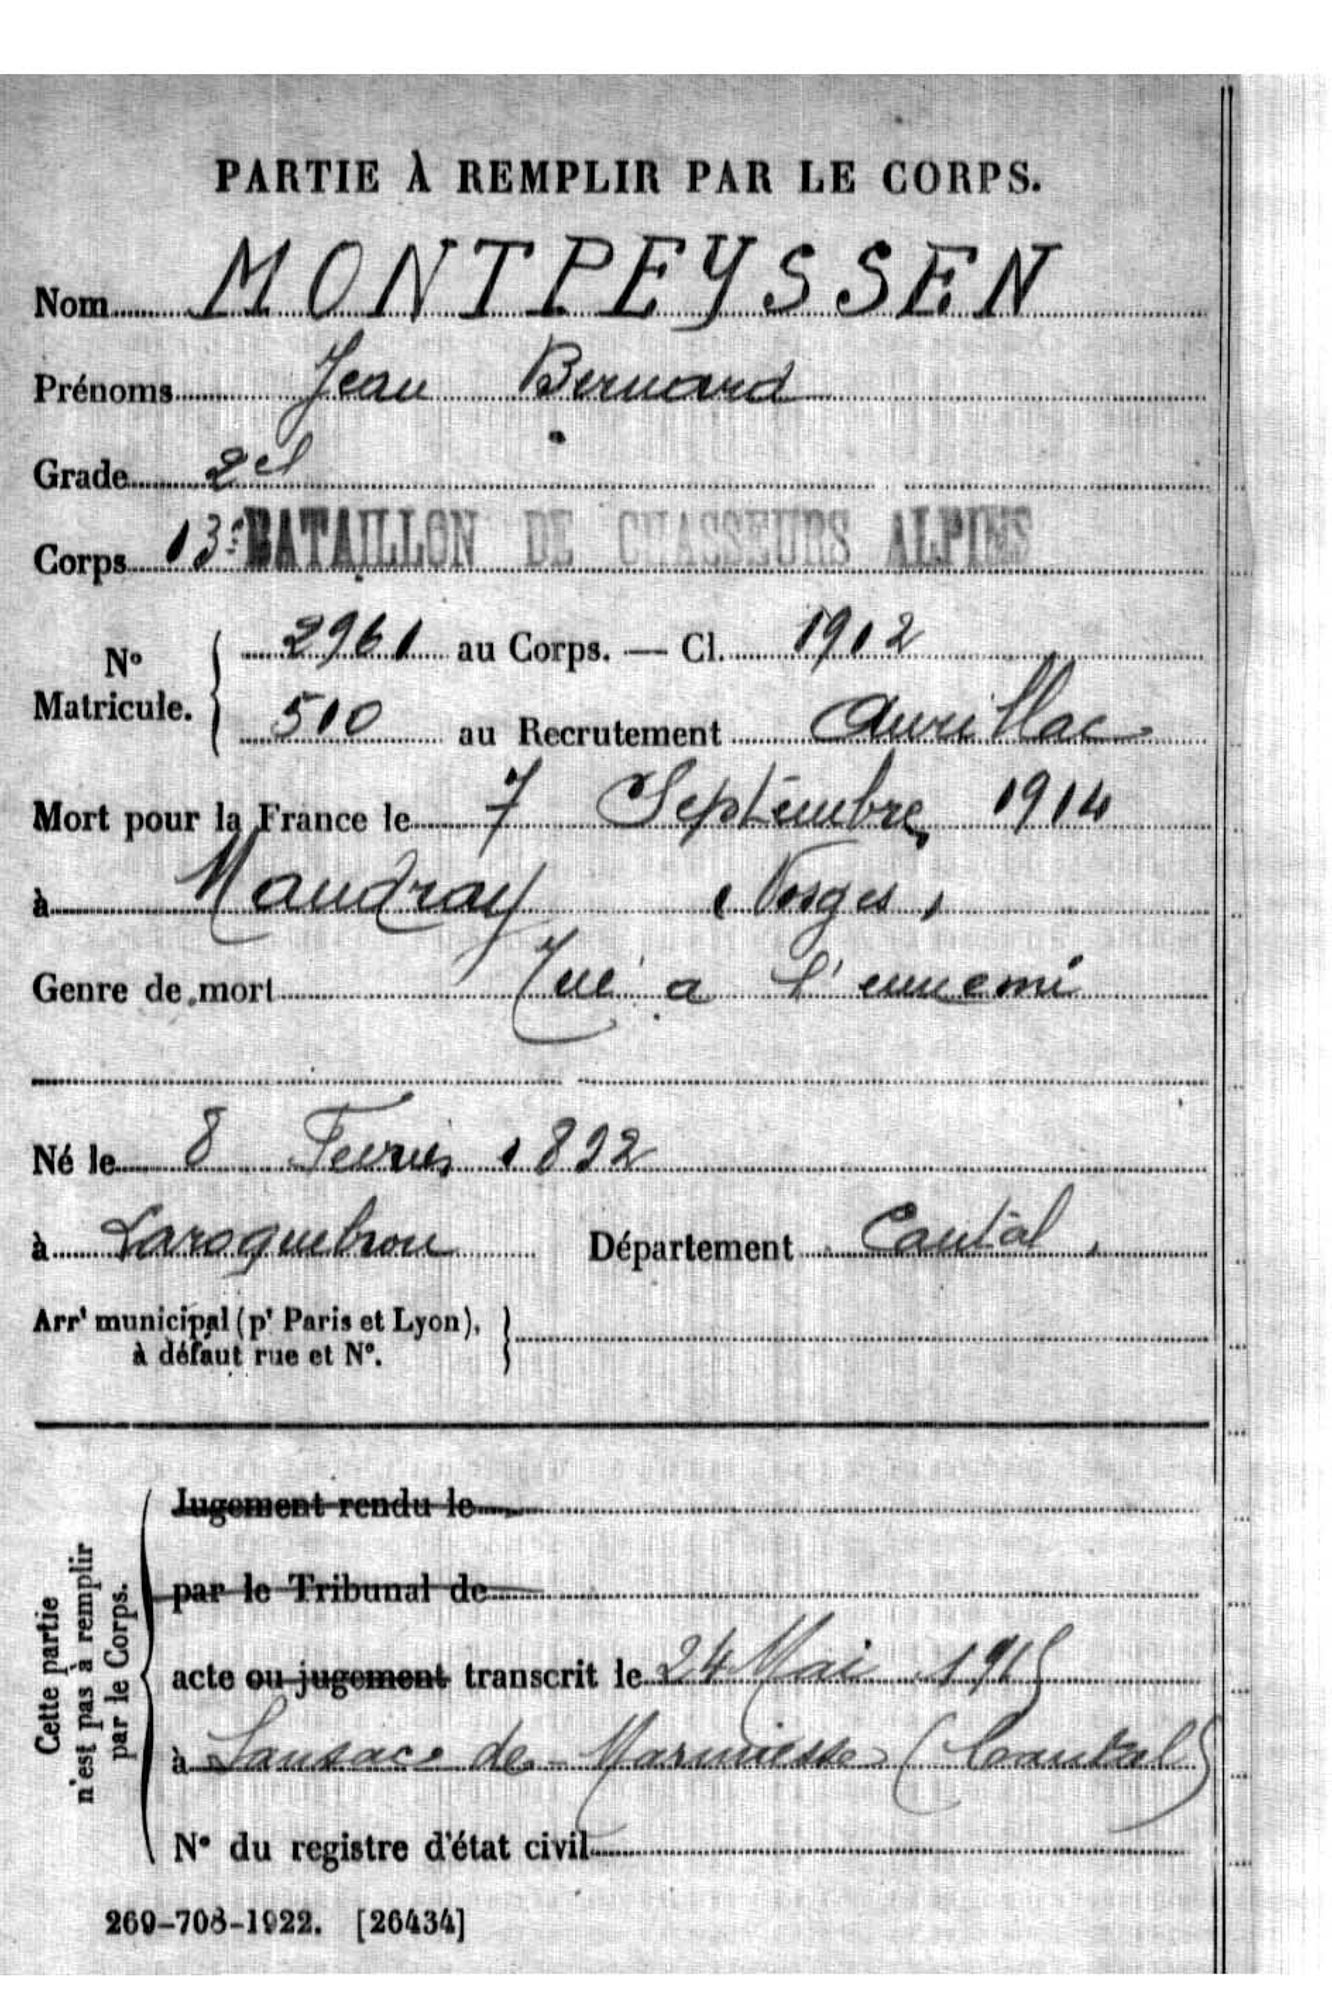 PARTIE À REMPLIR PAR LE CORPS.
Nom MONTPEYSSEN
Prénoms Jean Bernard
Grade 2e cl
Corps 13e BATAILLON DE CHASSEURS ALPINS
N° Matricule. { 2961 au Corps. — Cl. 1912
510 au Recrutement Aurillac
Mort pour la France le 7 Septembre 1914
à Mandray (Vosges)
Genre de mort Tué a l'ennemi
Né le 8 Fevrier 1892
à Laroquebrou Département Cantal.
Arrt municipal (pr Paris et Lyon),
à défaut rue et N°.
Cette partie
n'est pas à remplir
par le Corps.
Jugement rendu le
par le Tribunal de
acte ou jugement transcrit le 24 Mai 1915
à Sansac de Marmiesse (Cantal)
N° du registre d'état civil
269-708-1922. [26434]